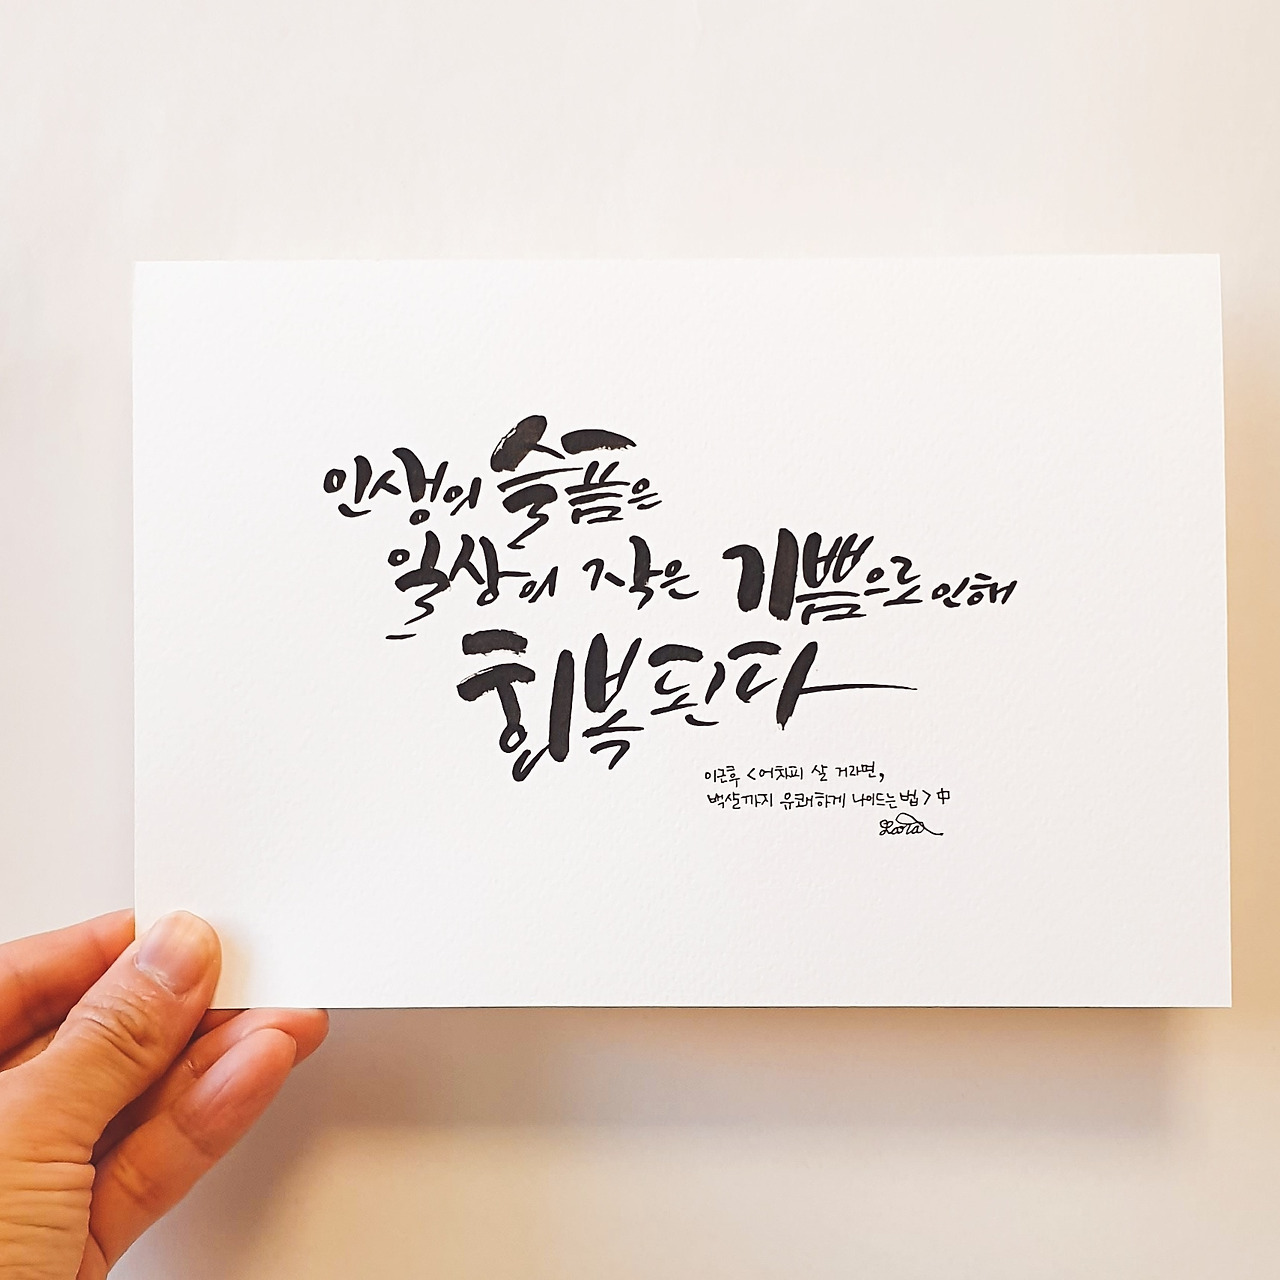 인생의 슬픔은
일상의 작은 기쁨으로 인해
회복된다
이근후 <어차피 살 거라면,
백살까지 유쾌하게 나이드는 법> 中